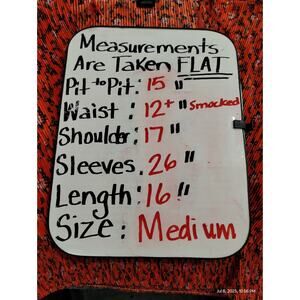 Measurements
Are Taken FLAT
Pit to Pit: 15"
Waist: 12+" Smocked
Shoulder: 17"
Sleeves: 26"
Length: 16"
Size: Medium
Jul 8, 2025, 10:56 PM